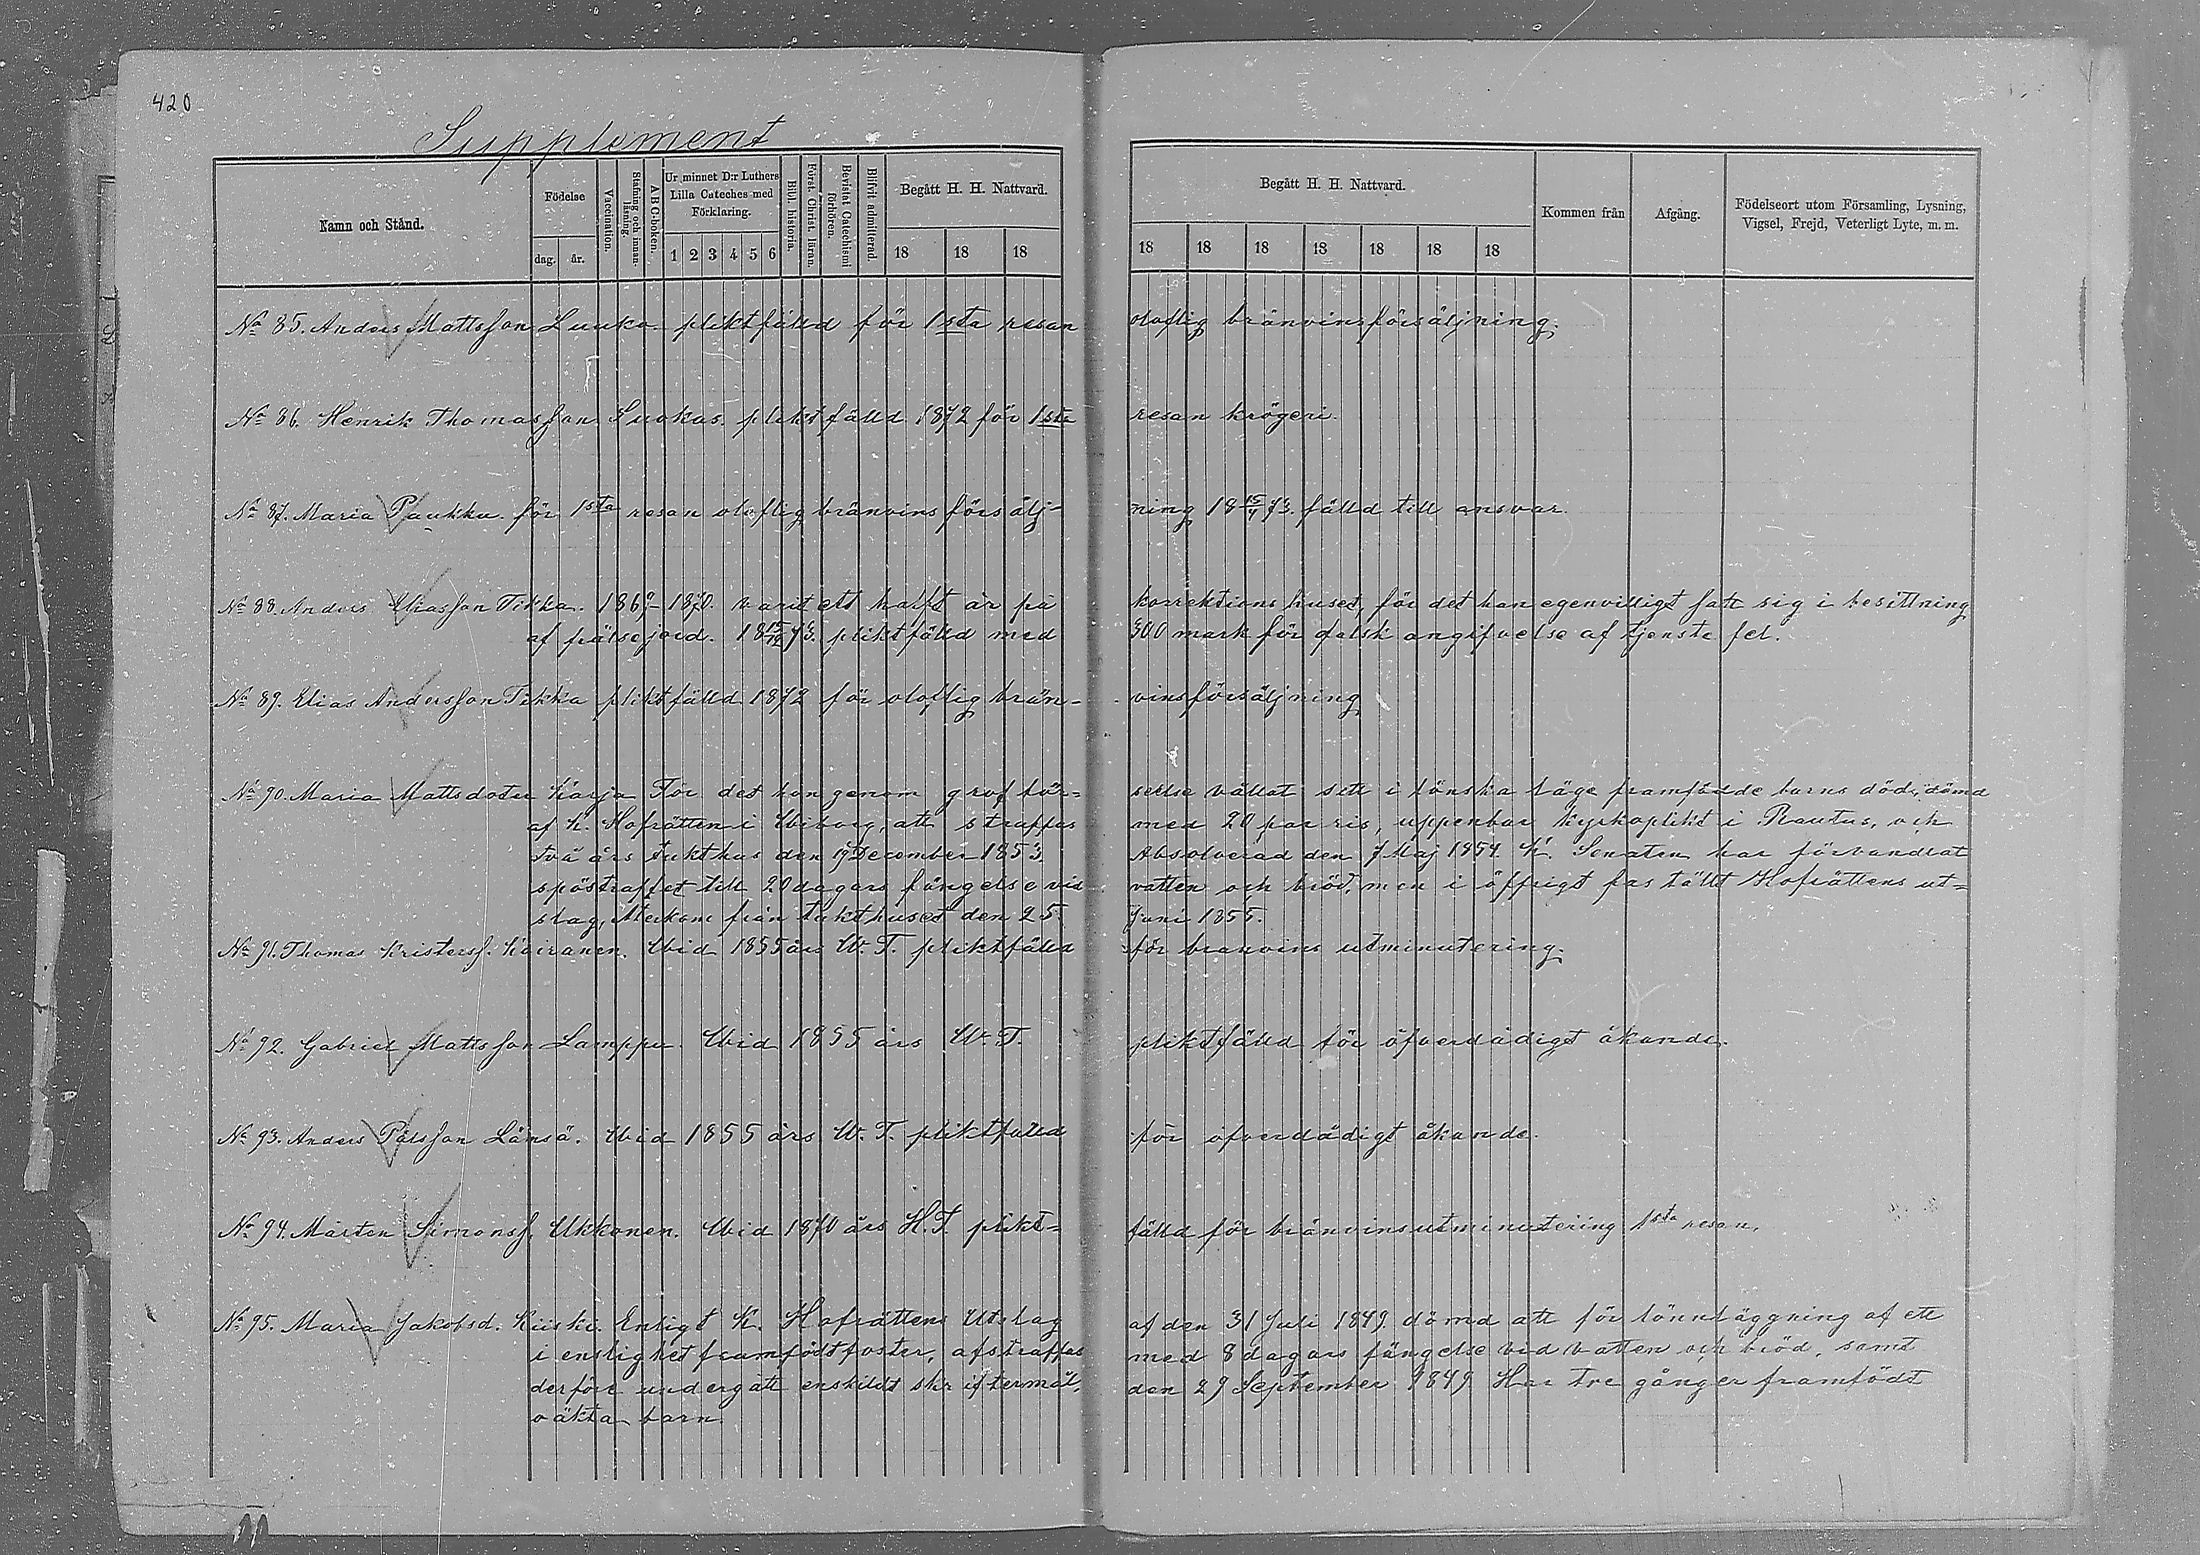 420
Supplement
Namn och Stånd.
Födelse
dag.
år.
Vaccination.
Stafning och innanläsning.
A B C-boken.
Ur minnet D:r Luthers
Lilla Cateches med
Förklaring.
1 2 3 4 5 6
Bibl. historia.
Först. Christ. läran.
Bevistat Catechismi
förhören.
Blifvit admitterad.
Begått H. H. Nattvard.
18 18 18
Begått H. H. Nattvard.
18 18 18 18 18 18 18
Kommen från
Afgång.
Födelseort utom Församling, Lysning,
Vigsel, Frejd, Veterligt Lyte, m. m.
No 85. Anders Mattsson Luuka pliktfälld för 1sta resan oloflig bränvinsförsäljning.
No 86. Henrik Thomasson Suokas pliktfälld 1872 för 1sta resan krögeri.
No 87. Maria Paukku för 1sta resan oloflig bränvins försälj- ning 18 15/1 73. fälld till ansvar.
No 88. Anders Eliasson Tikka. 1869-1870. varit ett halft år på korrektions huset, för det han egenvilligt satt sig i besittning
af frälsejord. 18 15/12 73. pliktfälld med 300 mark för falsk angifvelse af tjenste fel.
No 89. Elias Andersson Tikka pliktfälld 1872 för oloflig brän- vinsförsäljning
No 90. Maria Mattsdoter Karja För det hon genom grof vår- seelse vållat sitt i lönska läge framfödde barns död, dömd
af K. Hofrätten i Wiborg, att straffas med 20 par ris, uppenbar kyrkoplikt i Rautus, och
två års tukthus den 19 December 1853. Absolverad den 7 Maj 1854. K. Senaten har förvandlat
spöstraffet till 20 dagars fängelse vid vatten och bröd, men i öffrigt faställt Hofrättens ut-
slag, Återkom från tukthuset den 25 Juni 1855.
No 91. Thomas Kristerss. Kairanen. Wid 1855 års W. T. pliktfälld för bränvins utminutering.
No 92. Gabriel Mattsson Lamppu. Wid 1855 års W. T. pliktfälld för öfverdådigt åkande.
No 93. Anders Pålsson Länsä. Wid 1855 års W. T. pliktfälld för öfverdådigt åkande.
No 94. Mårten Simonss. Ukkonen. Wid 1870 års H. T. plikt- fälld för bränvinsutminutering 1sta resan.
No 95. Maria Jakobsd. Kiiski. Enligt K. Hofrättens Utslag af den 31 Juli 1849. dömd att för lönnläggning af ett
i enslighet framfödt foster, afstraffas med 8 dagars fängelse vid vatten och bröd, samt
derföre undergått enskildt skriftermål, den 29 September 1849 Har tre gånger framfödt
oäkta barn.